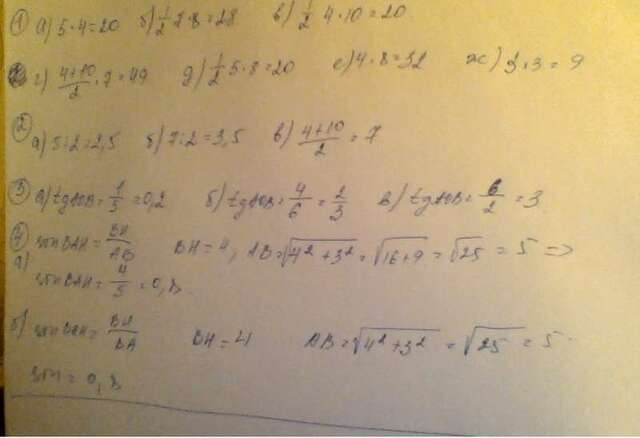 ① а) 5·4=20 б) 1/2 7·8=28 в) 1/2 4·10=20
г) (4+10)/2 · 7=49 д) 1/2 5·8=20 е) 4·8=32 ж) 3·3=9
② а) 5:2=2,5 б) 7:2=3,5 в) (4+10)/2 = 7
③ а) tgAOB = 1/5 = 0,2 б) tgAOB = 4/6 = 2/3 в) tgAOB = 6/2 = 3
④ sin BAH = BH/AB BH=4, AB=√(4²+3²)=√(16+9)=√25=5 =>
а)
sin BAH = 4/5 = 0,8.
б) = BH/BA BH=4 AB=√(4²+3²)=√25=5
sin = 0,8